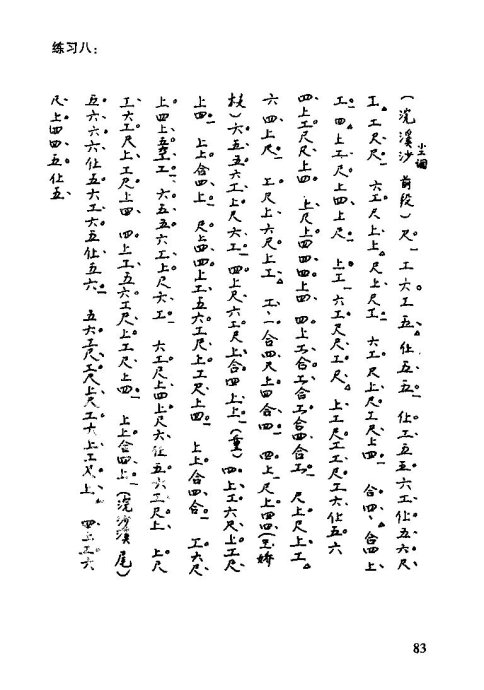 练习八：
（浣溪沙 前段）尺 工六工五 仩五五 仩工五五六工仩五六尺
小工调
工 工尺尺 六工尺上上 尺上尺工 六工尺上尺工尺上四 合四 合四上
工 四上工尺上四上尺 上工 六工尺尺工尺 上工尺工工尺工六仩五六
四上工尺尺上四 上尺上四四四上四 四上工合工合工合四合工 尺上尺上工
六四上尺 工尺上六尺上工 工 一合四尺上四合四 四上尺上四四（王娇
枝）六五五六工上尺六工 四上尺六工尺上合四上上（重）四上工六尺上工尺
上四 上上合四上 尺上四四上工五六工尺上工尺上四 上上合四合 工六尺
上四上五空工 六五五六工上尺六工 六工尺上四上尺六仩五六工尺上 上尺
工六工尺上工尺上四 四上工五六工尺上工尺上四 上上合四上（浣沙溪 尾）
五六六六仩五六工六五仩五六 五六工尺工尺上尺工六上工尺上 四上工六
尺上四四五仩五
83